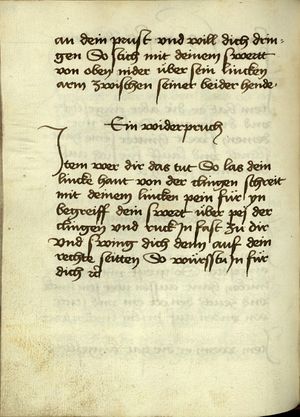 an dein prust vnd will dich drin=
gen So stich mit deinem swertt
von oben nider über sein lincken
arm zwischen seiner beider hende ·
Ein widerpruch
Item wer dir das tut So las dein
lincke hant von der clingen schreit
mit deinem lincken pein für yn
begreiff dein swert über peÿ der
clingen vnd ruck In fast zu dir
vnd swing dich denn auf dein
rechte seitten So würffstu In für
dich